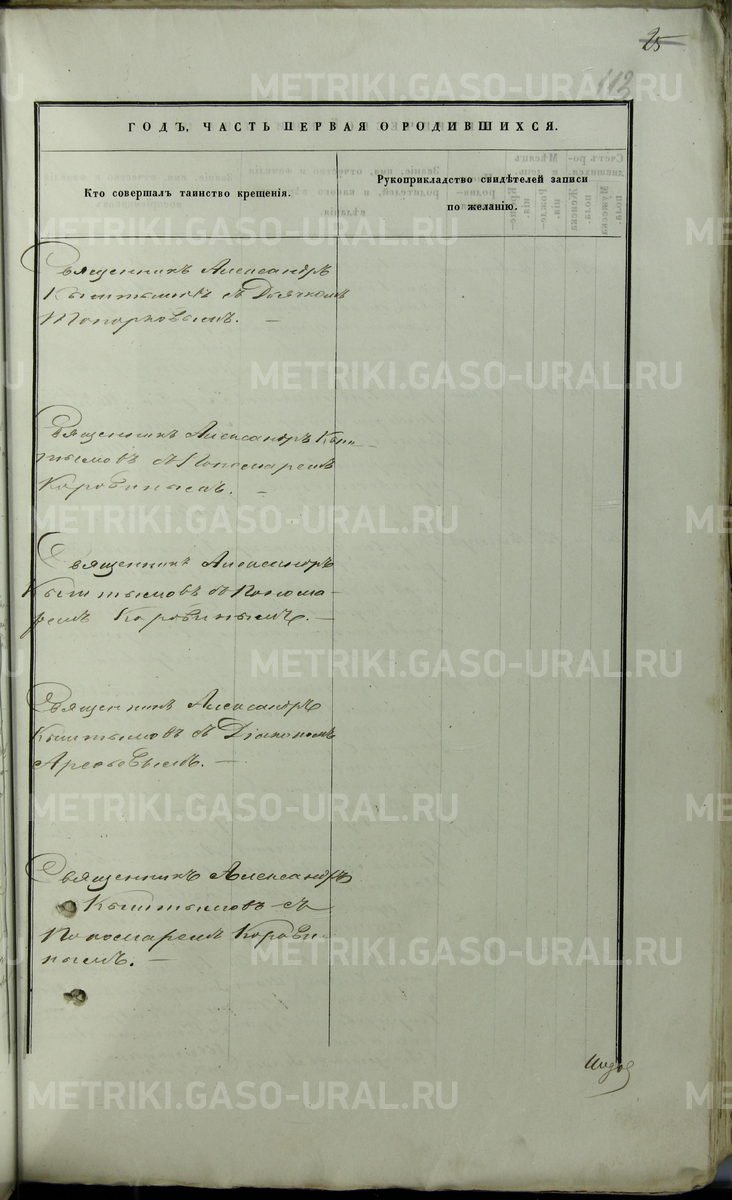 25
112
ГОДЪ, ЧАСТЬ ПЕРВАЯ О РОДИВШИХСЯ.
Кто совершалъ таинство крещенія.
Рукоприкладство свидѣтелей записи
по желанію.
Священникъ Александръ
Кыштымовъ съ Дьячкомъ
Топорковымъ. —
Священникъ Александръ Кыш-
тымовъ съ Пономаремъ
Коровинымъ. —
Священникъ Александръ
Кыштымовъ съ Понома-
ремъ Коровинымъ. —
Священникъ Александръ
Кыштымовъ съ Діакономъ
Арефьевымъ. —
Священникъ Александръ
Кыштымовъ съ
Пономаремъ Корови-
нымъ. —
METRIKI.GASO-URAL.RU